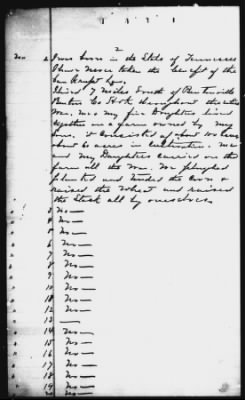 2
Ans 2 I was born in the State of Tennessee
I have never taken the benefit of the
Bankrupt Law.
I lived 7 Miles South of Bentonville
Benton Co Ark throughout the entire
War. Me & my five Daughters lived
together on a farm owned by my
Son, it consisted of about 100 acres
about 60 acres in Cultivation. Me
and my Daughters carried on the
farm all the War. We ploughed
planted and tended the Corn &
raised the Wheat and raised
the Stock all by ourselves
" 3 No—
" 4 No—
" 5 No—
" 6 No—
" 7 No—
" 8 No—
" 9 No—
" 10 No—
" 11 No—
" 12 No—
" 13 —
" 14 No—
" 15 No—
" 16 No—
" 17 No—
" 18 No—
" 19 No—
" 20 No—